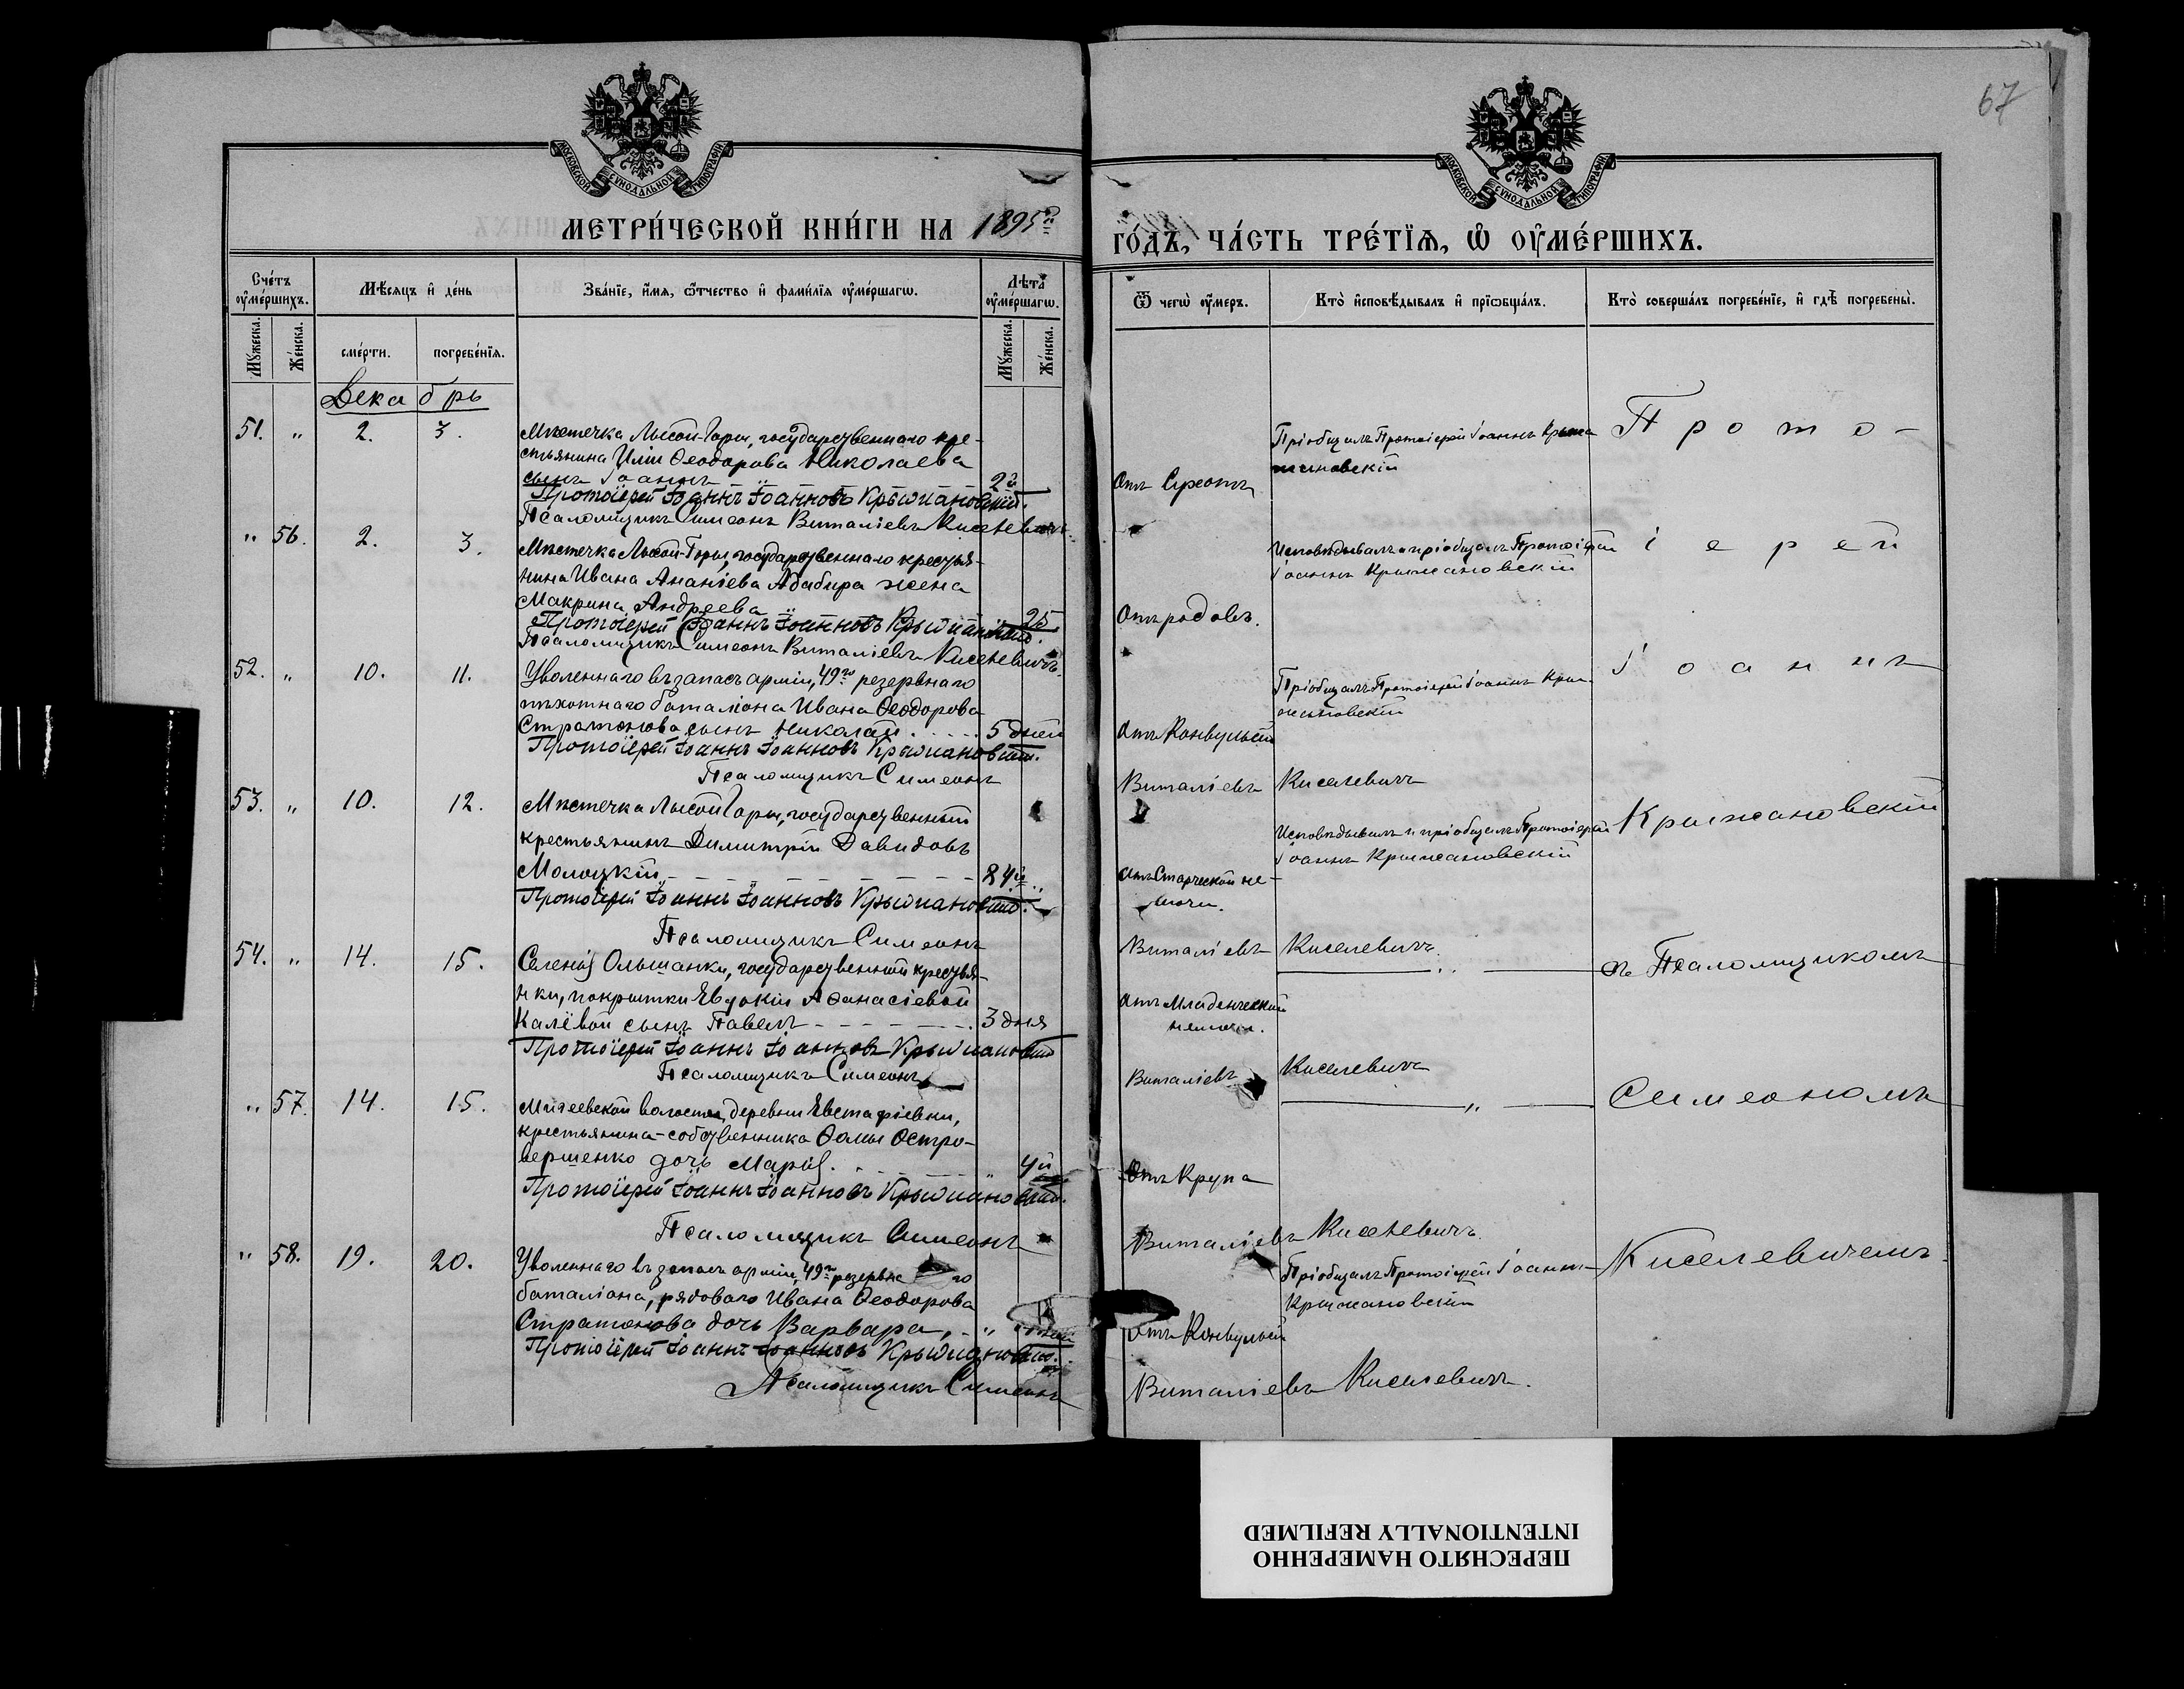 67
МОСКОВСКОЙ СѴНОДАЛЬНОЙ ТИПОГРАФІИ
МОСКОВСКОЙ СѴНОДАЛЬНОЙ ТИПОГРАФІИ
МЕТРИ́ЧЕСКОЙ КНИ́ГИ НА 1895й
ГО́ДЪ, ЧА́СТЬ ТРЕ́ТЇѦ, Ѡ ОУМЕ́РШИХЪ.
Сче́тъ оуме́ршихъ.
Мѣ́сяцъ и де́нь
Зва́нїе, и́мѧ, ѿтчество и фами́лїѧ оуме́ршагѡ.
Лѣта̀ оуме́ршагѡ.
Ѿ чегѡ̀ оу́меръ.
Кто̀ исповѣ́дывалъ и прїѡбща́лъ.
Кто̀ соверша́лъ погребе́нїе, и гдѣ̀ погребены̀.
Му́жеска.
Же́нска.
сме́рти.
погребе́нїѧ.
Му́жеска.
Же́нска.
Декабрь
51. " 2. 3.
Мѣстечка Лысой-Горы, государственнаго кре-
стьянина Иліи Ѳеодорова Николаева
сынъ Іоаннъ 2й
Протоіерей Іоаннъ Іоанновъ Крыжановскій.
Псаломщикъ Симеонъ Виталіевъ Киселевичъ
Отъ Сухотъ
Пріобщалъ Протоіерей Іоаннъ Крыжа
жановскій
Прото-
" 56. 2. 3.
Мѣстечка Лысой-Горы, государственнаго крестья-
нина Ивана Ананіева Абабира жена
Макрина Андреева 25
Протоіерей Іоаннъ Іоанновъ Крыжановскій.
Псаломщикъ Симеонъ Виталіевъ Киселевичъ.
Отъ родовъ.
Исповѣдывалъ и пріобщалъ Протоіерей
Іоаннъ Крыжановскій
іерей
52. " 10. 11.
Уволеннаго въ запасъ арміи, 49го резервнаго
пѣхотнаго баталіона Ивана Ѳеодорова
Стратонова сынъ Николай 5 дней
Протоіерей Іоаннъ Іоанновъ Крыжановскій.
Псаломщикъ Симеонъ Виталіевъ Киселевичъ
Отъ Конвульсій
Пріобщалъ Протоіерей Іоаннъ Кры-
жановскій
Іоаннъ
53. " 10. 12.
Мѣстечка Лысой Горы, государственный
крестьянинъ Димитрій Давидовъ
Молоцкій 84й "
Протоіерей Іоаннъ Іоанновъ Крыжановскій.
Псаломщикъ Симеонъ Виталіевъ Киселевичъ.
Отъ Старческой не-
мочи.
Исповѣдывалъ и пріобщалъ Протоіерей
Іоаннъ Крыжановскій
Крыжановскій
54. " 14. 15.
Селенія Ольшанки, государственной крестья-
нки, покрытки Евдокіи Аѳанасіевой
Калёвой сынъ Павелъ 3 дня
Протоіерей Іоаннъ Іоанновъ Крыжановскій
Псаломщикъ Симеонъ Виталіевъ Киселевичъ
Отъ Младенческой
немочи.
"
съ Псаломщикомъ
" 57. 14. 15.
Мигеевской волости, деревни Евстафіевки,
крестьянина-собственника Ѳомы Остро-
вершенко дочь Марія. 4й
Протоіерей Іоаннъ Іоанновъ Крыжановскій.
Псаломщикъ Симеонъ Виталіевъ Киселевичъ.
Отъ Крупа
"
Симеономъ
" 58. 19. 20.
Уволеннаго въ запасъ арміи, 49го резервнаго
баталіона, рядового Ивана Ѳеодорова
Стратонова дочь Варвара, "
Протоіерей Іоаннъ Іоанновъ Крыжановскій.
Псаломщикъ Симеонъ Виталіевъ Киселевичъ.
Отъ Конвульсій
Пріобщалъ Протоіерей Іоаннъ
Крыжановскій
Киселевичемъ.
ПЕРЕСНЯТО НАМЕРЕННО
INTENTIONALLY REFILMED